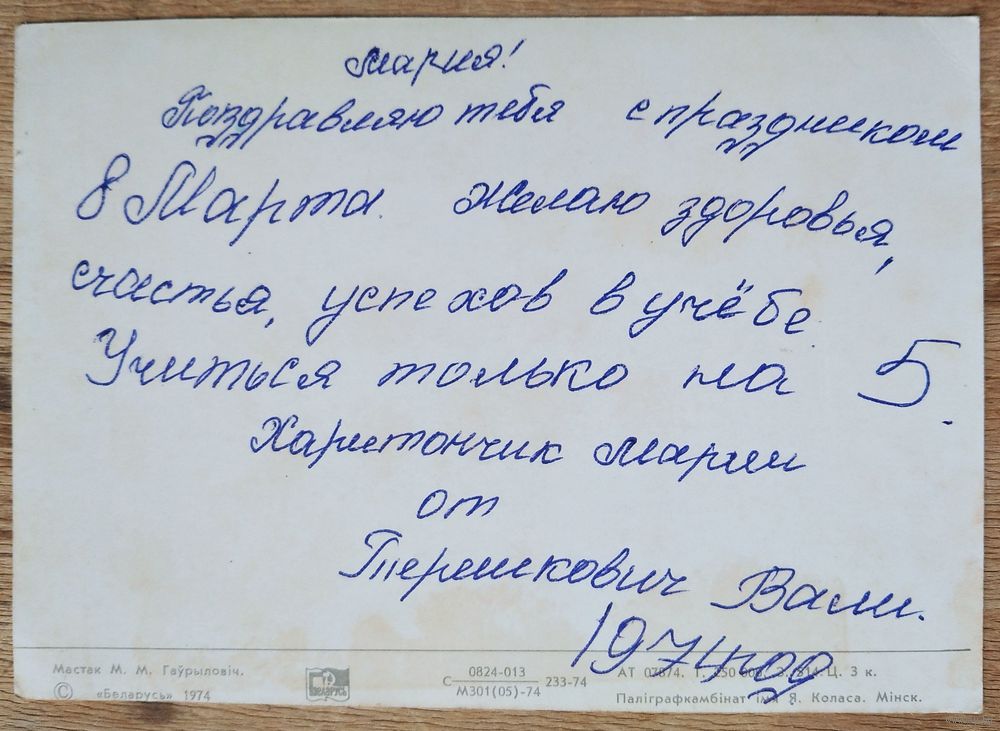 Мария!
Поздравляю тебя с праздником
8 Марта. Желаю здоровья,
счастья, успехов в учёбе
Учиться только на 5.
Харитончик Марии
от
Терешкович Вали.
1974 год
Мастак М. М. Гаўрыловіч.
© «Беларусь» 1974
БЕЛАРУСЬ
С 0824-013 233-74
М301(05)-74
АТ 07874. Т. Ц. 3 к.
Паліграфкамбінат імя Я. Коласа. Мінск.